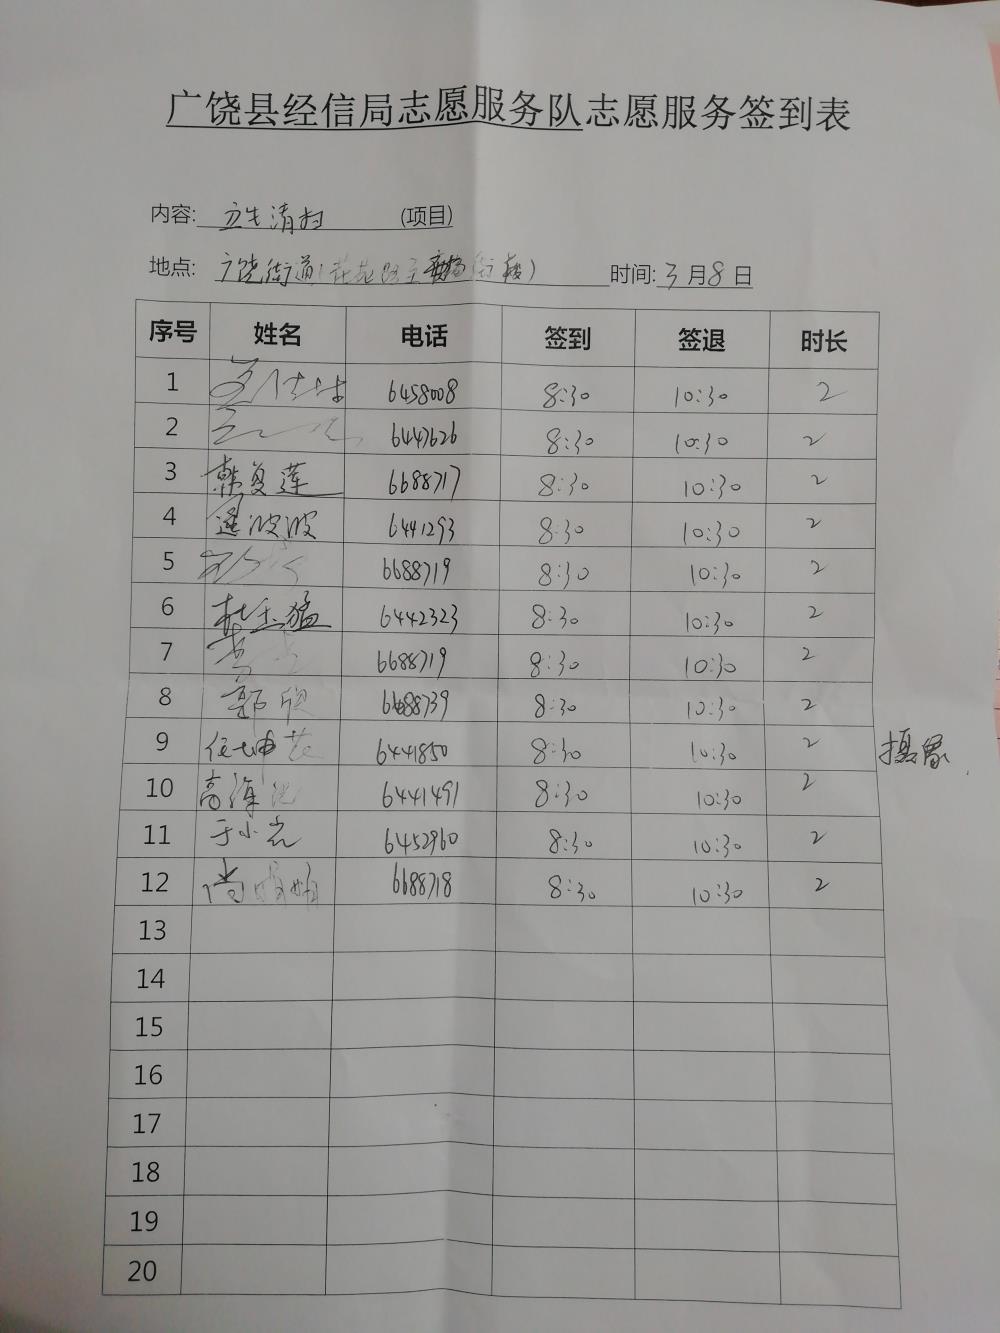 广饶县经信局志愿服务队志愿服务签到表
内容: 卫生清扫 (项目)
地点: 广饶街道( 时间: 3月8日
序号 姓名 电话 签到 签退 时长
1 6458008 8:30 10:30 2
2 6447626 8:30 10:30 2
3 韩复莲 6688717 8:30 10:30 2
4 波波 6441293 8:30 10:30 2
5 6688719 8:30 10:30 2
6 杜玉猛 6442323 8:30 10:30 2
7 6688719 8:30 10:30 2
8 郭欣 6688739 8:30 10:30 2
9 任坤花 6441850 8:30 10:30 2 摄象
10 高 6441491 8:30 10:30 2
11 于小光 6452960 8:30 10:30 2
12 尚 6688718 8:30 10:30 2
13
14
15
16
17
18
19
20